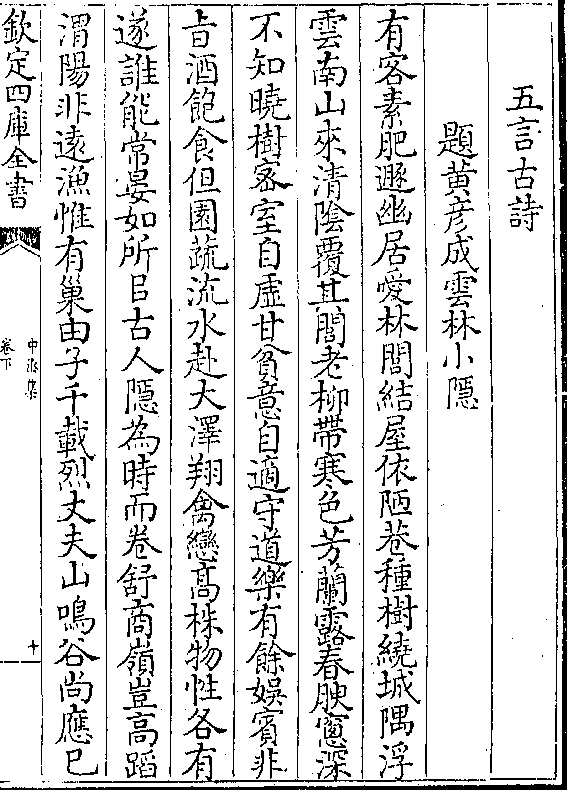 五言古詩
題黄彦成雲林小隱
有客素肥遯幽居愛林閭結屋依陋巷種樹繞城隅浮
雲南山來清陰覆其閭老柳帶寒色芳蘭露春腴窓深
不知曉樹宻室自虛甘貧意自適守道樂有餘娱賓非
㫖酒飽食但園蔬流水赴大澤翔禽戀髙株物性各有
遂誰能常晏如所㠯古人隱為時而卷舒商嶺豈高蹈
渭陽非遠漁惟有巢由子千載烈丈夫山鳴谷尚應已
欽定四庫全書
卷下
十